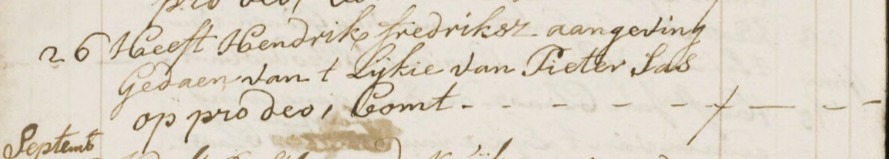 pro deo,
26 Heeft Hendrik fredriksz aangeving
Gedaen van t Lijkie van Pieter Sas
op pro deo, Comt - - - - - - + — - -
Septemb